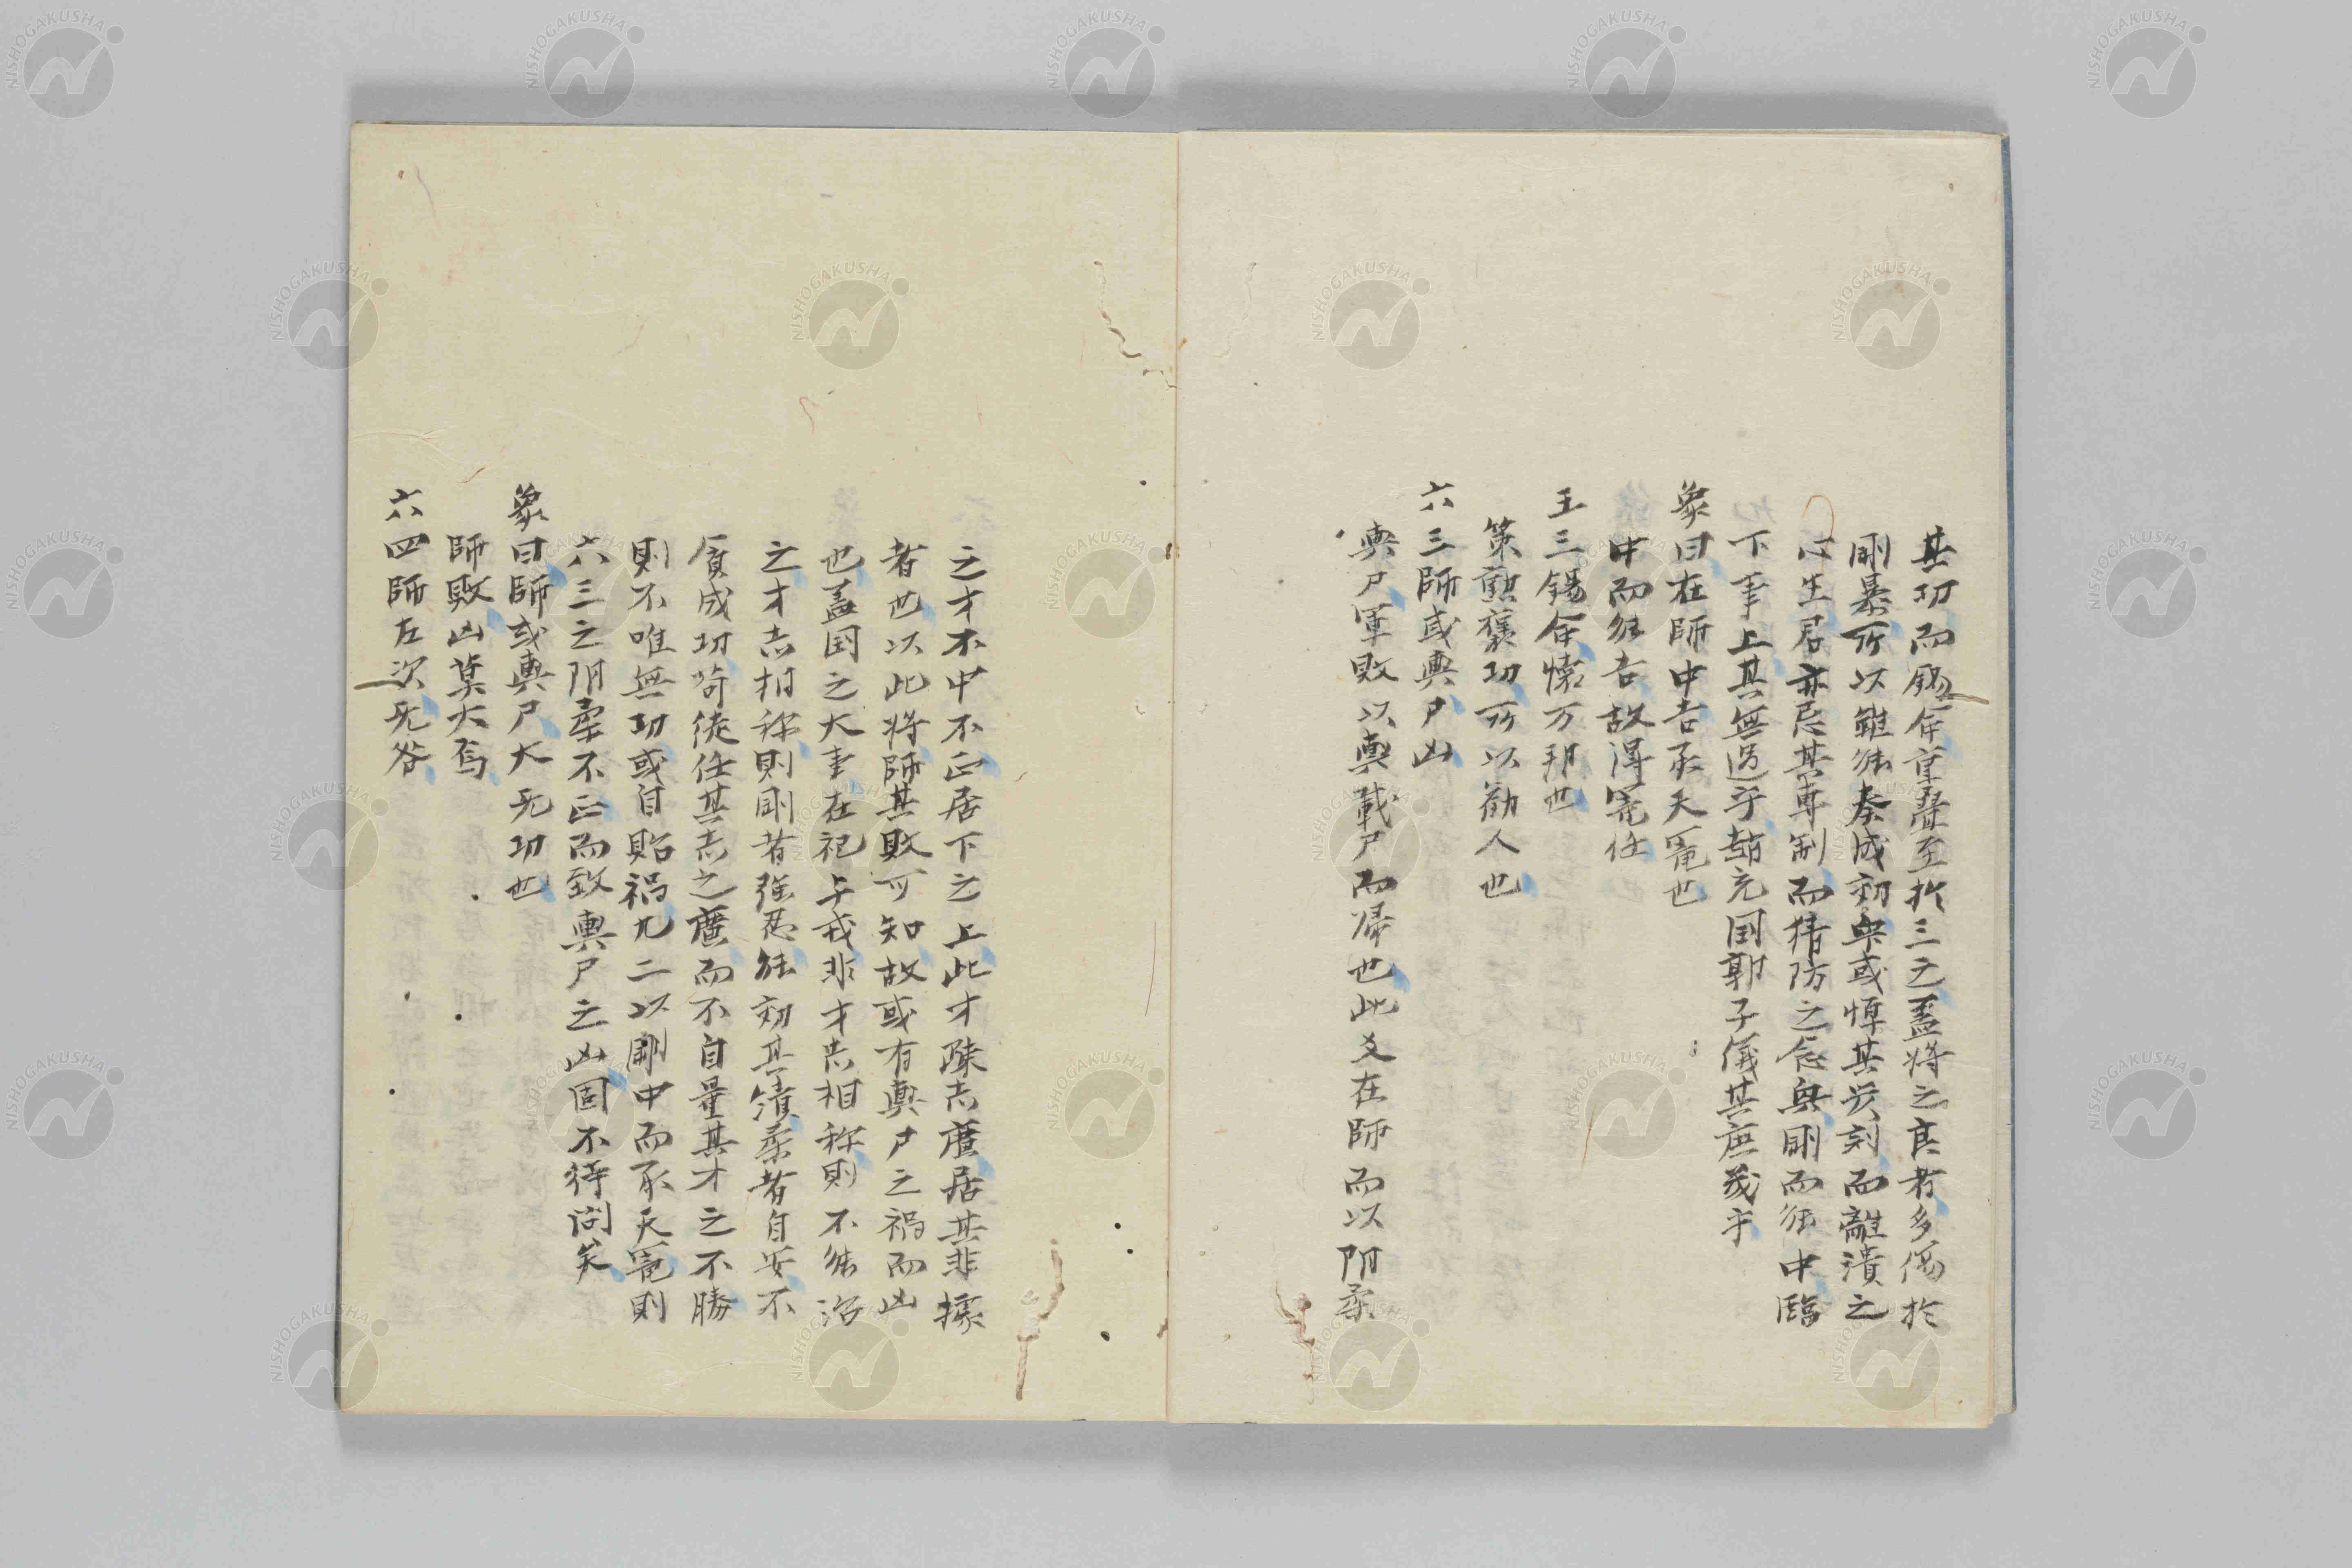 其功而錫命重疊至於三之蓋將之良者多傷於
剛暴所以雖能奏成効與或憚其炭刻而離潰之
心生君亦忌其專制而猜防之念與剛而能中臨
下事上其無過乎趙充国郭子儀其庶幾乎
象曰在師中吉承天寵也
中而能吉故得寵任
王三錫命懷万邦也
策勲褒功所以勧人也
六三師或輿尸凶
輿尸軍敗以輿載尸而帰也此爻在師而以阴柔
之才不中不正居下之上此才疎志廣居其非據
者也以此将師其敗可知故或有輿尸之禍而凶
也蓋国之大事在祀与戎非才志相称則不能治
之才志相称則剛者強忍能効其績柔者自安不
貭成功苟徒任其志之廣而不自量其才之不勝
則不唯無功或自貽禍九二以剛中而承天寵則
六三之阴柔不正而致輿尸之凶固不待問矣
象曰師或輿尸大无功也
師敗凶莫大焉
六四師左次无咎
NISHOGAKUSHA